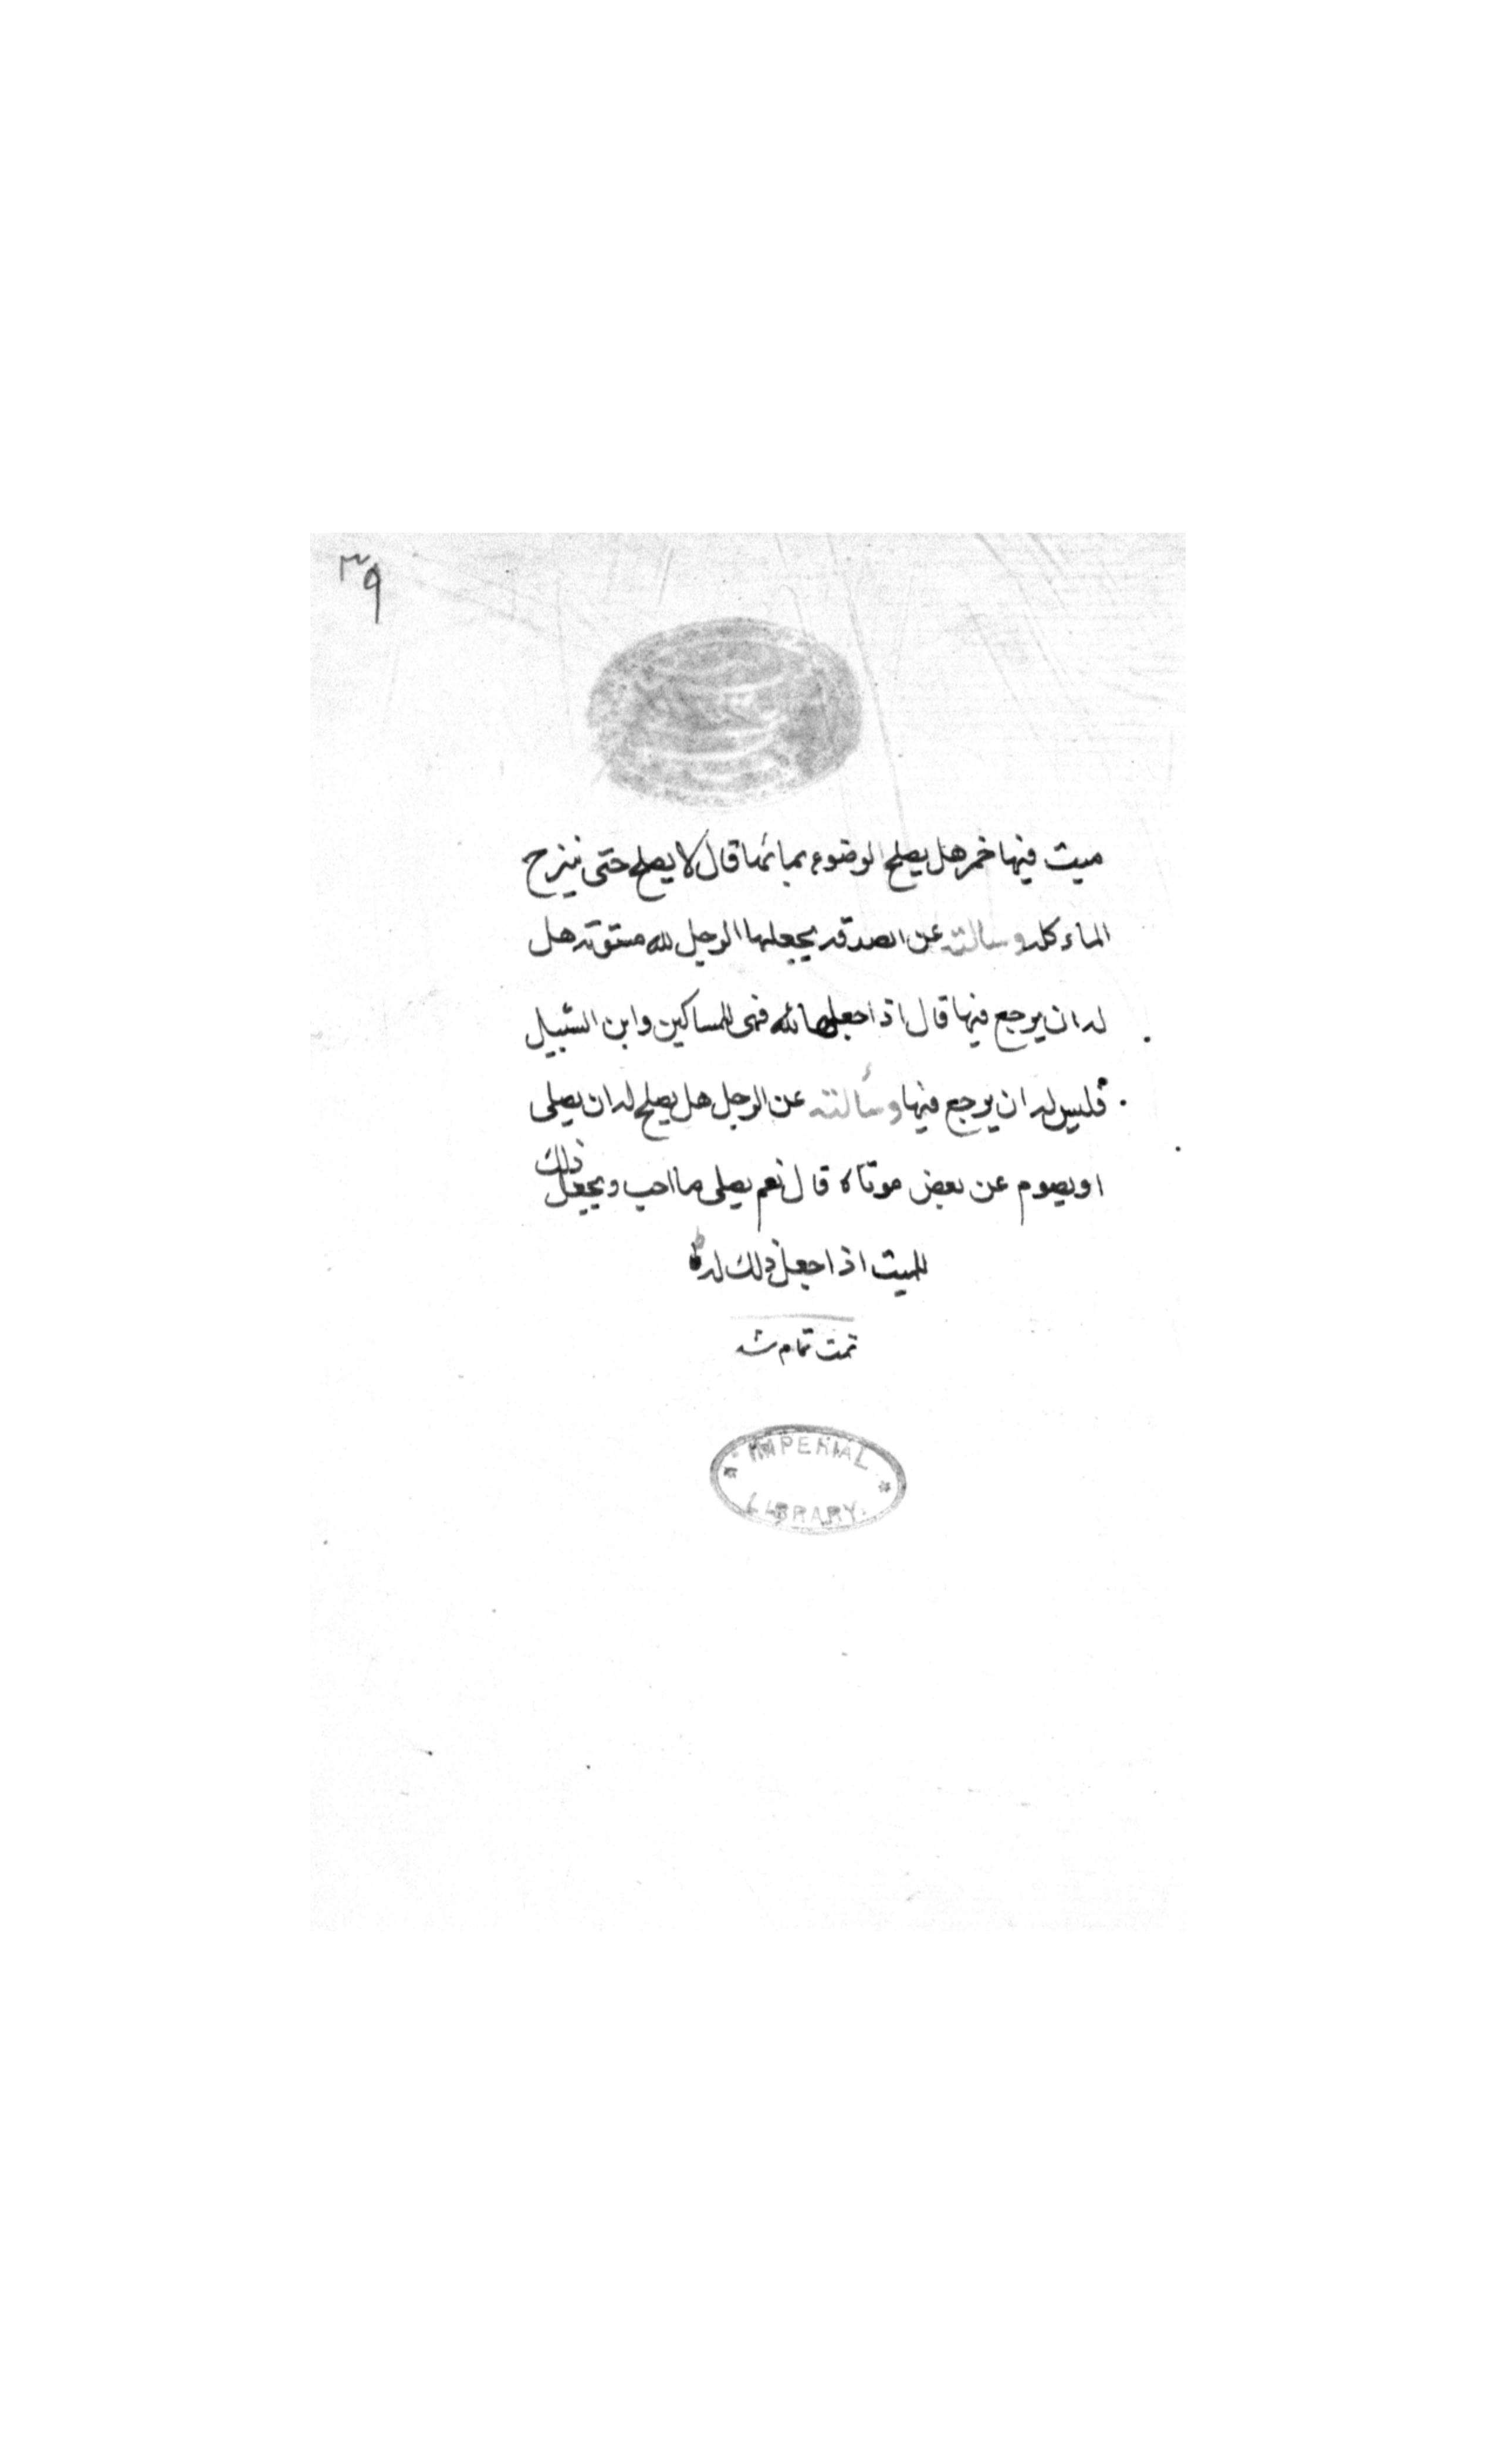 ٣٩
ميت فيها خمر هل يصلح الوضوء بمائها قال لا يصلح حتى ينزح
الماء كله وسالته عن الصدقه يجعلها الرجل لله مبتوته هل
له ان يرجع فيها قال اذا جعلها لله فهى للمساكين وابن السبيل
فليس له ان يرجع فيها وسألته عن الرجل هل يصلح له ان يصلى
او يصوم عن بعض موتاه قال نعم يصلى ما احب ويجعل ذلك
للميت اذا جعل ذلك له
تمت تمام شد
IMPERIAL
LIBRARY